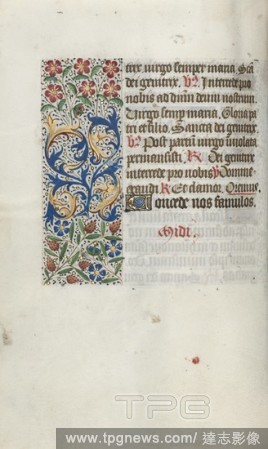 trix. virgo semper maria. Sca
dei genitrix. V. Intercede pro
nobis ad dnm deum nostrum.
Virgo semp maria. Gloria pa
tri et filio. Sancta dei genitrix.
V. Post partu virgo inviolata
permansisti. R. Dei genitrix
intercede pro nobis. V. Domine
exaudi R. Et clamor. Oremus.
Concede nos famulos.
Midi.
TPG
http://www.tpgnews.com/ 達志影像